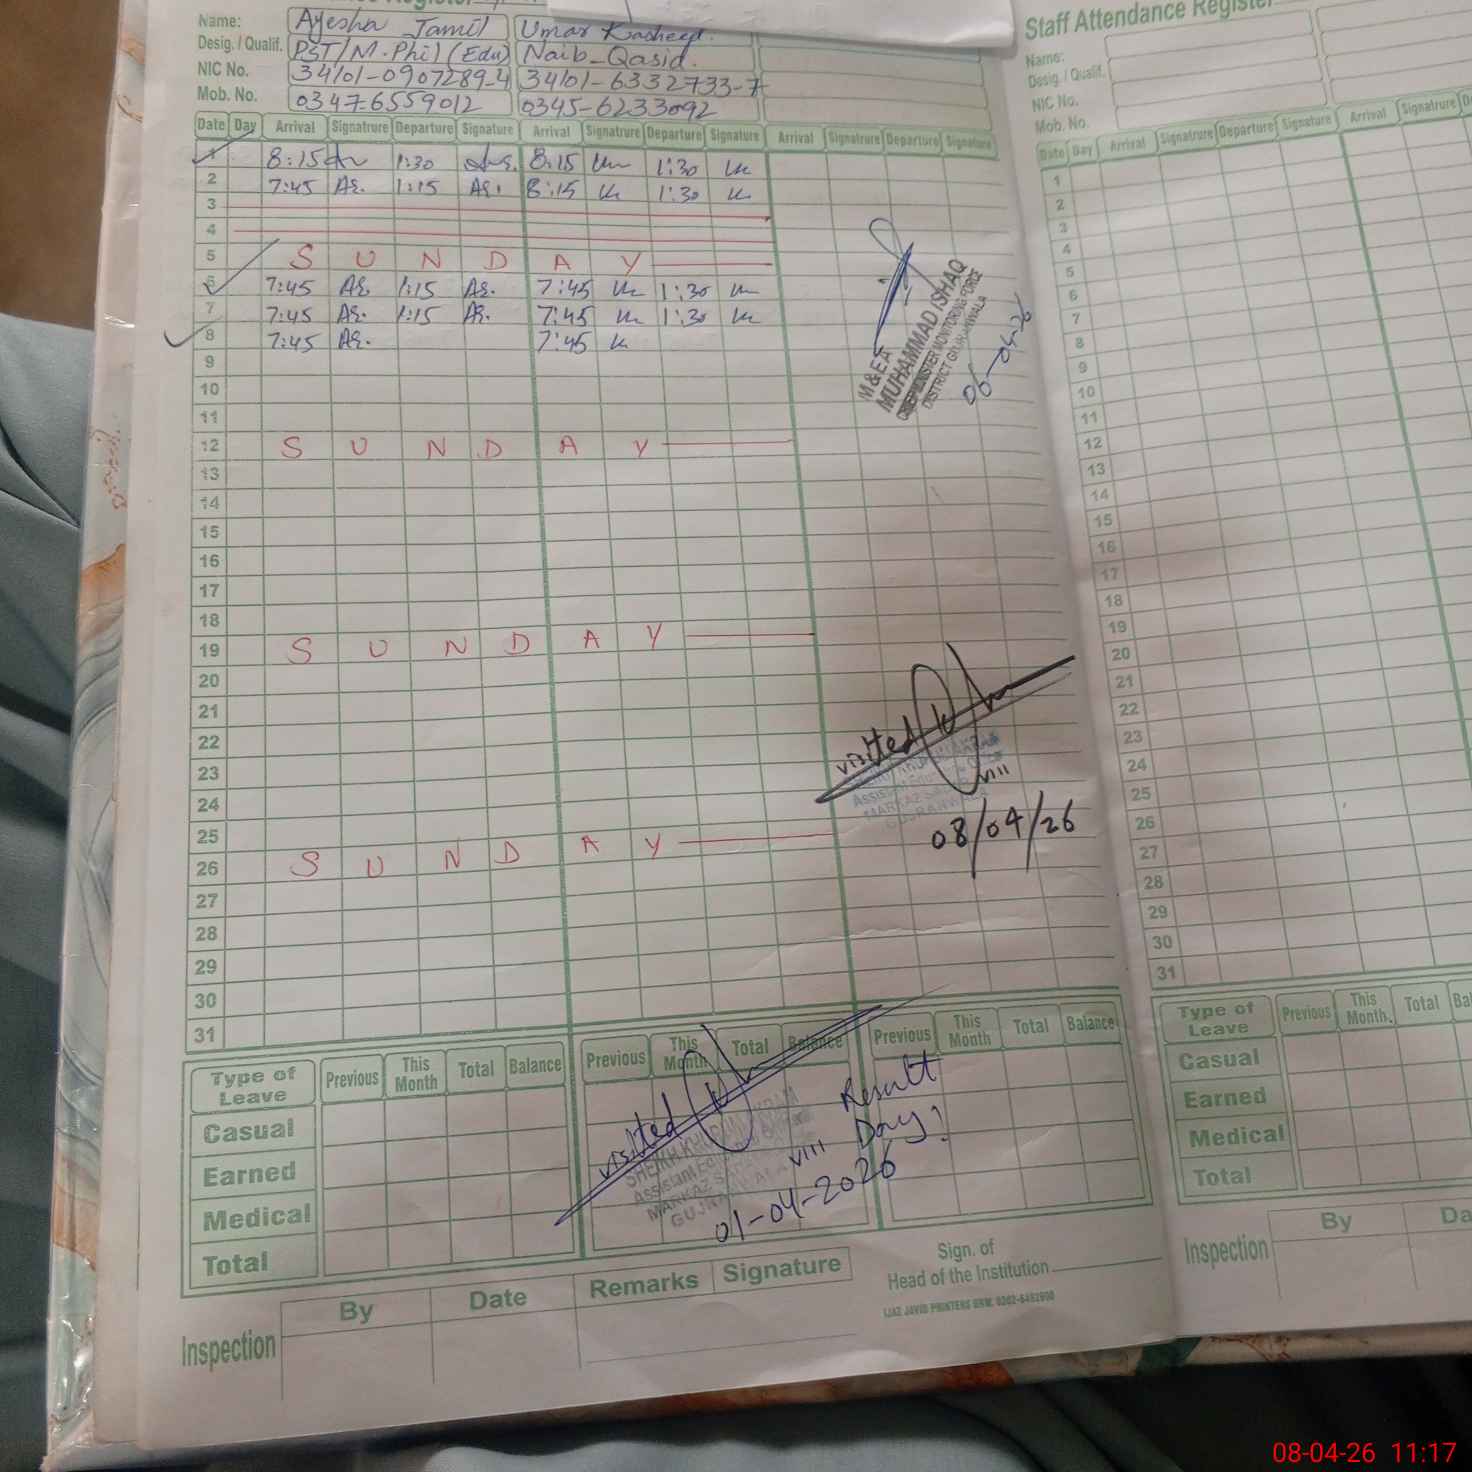 Staff Attendance Register
Name: Ayesha Jamil Umar Kasheef.
Desig. / Qualif. PST/M.Phil (Edu) Naib-Qasid.
NIC No. 34101-0907289-4 34101-6332733-7
Mob. No. 0347-6559012 0345-6233092
Date Day Arrival Signatrure Departure Signature Arrival Signatrure Departure Signature Arrival Signatrure Departure Signature
1 8:15 1:30 8:15 1:30
2 7:45 1:15 8:15 1:30
3
4
5 S U N D A Y
6 7:45 1:15 7:45 1:30
7 7:45 1:15 7:45 1:30
8 7:45 7:45
9
10
11
12 S U N D A Y
13
14
15
16
17
18
19 S U N D A Y
20
21
22
23
24
25
26 S U N D A Y
27
28
29
30
31
M & E A
MUHAMMAD ISHAQ
CHIEF MINISTER MONITORING FORCE
DISTRICT GUJRANWALA
06-04-26
visited
VIII
GUJRANWALA
08/04/26
Type of Leave Previous This Month Total Balance Previous This Month Total Balance Previous This Month Total Balance
Casual
Earned
Medical
Total
visited
Result
VIII Day!
SHEIKH KHURAM
GUJRANWALA
01-04-2026
Sign. of
Head of the Institution
IJAZ JAVID PRINTERS
By Date Remarks Signature
Inspection
Name:
Desig. / Qualif.
NIC No.
Mob. No.
Date Day Arrival Signatrure Departure Signature Arrival Signatrure
1
2
3
4
5
6
7
8
9
10
11
12
13
14
15
16
17
18
19
20
21
22
23
24
25
26
27
28
29
30
31
Type of Leave Previous This Month. Total
Casual
Earned
Medical
Total
By
Inspection
08-04-26 11:17